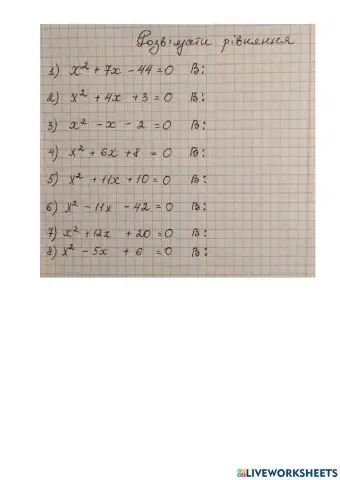 Розв'язати рівняння
1) x² + 7x - 44 = 0 В:
2) x² + 4x + 3 = 0 В:
3) x² - x - 2 = 0 В:
4) x² + 6x + 8 = 0 В:
5) x² + 11x + 10 = 0 В:
6) x² - 11x - 42 = 0 В:
7) x² + 12x + 20 = 0 В:
8) x² - 5x + 6 = 0 В:
LIVEWORKSHEETS